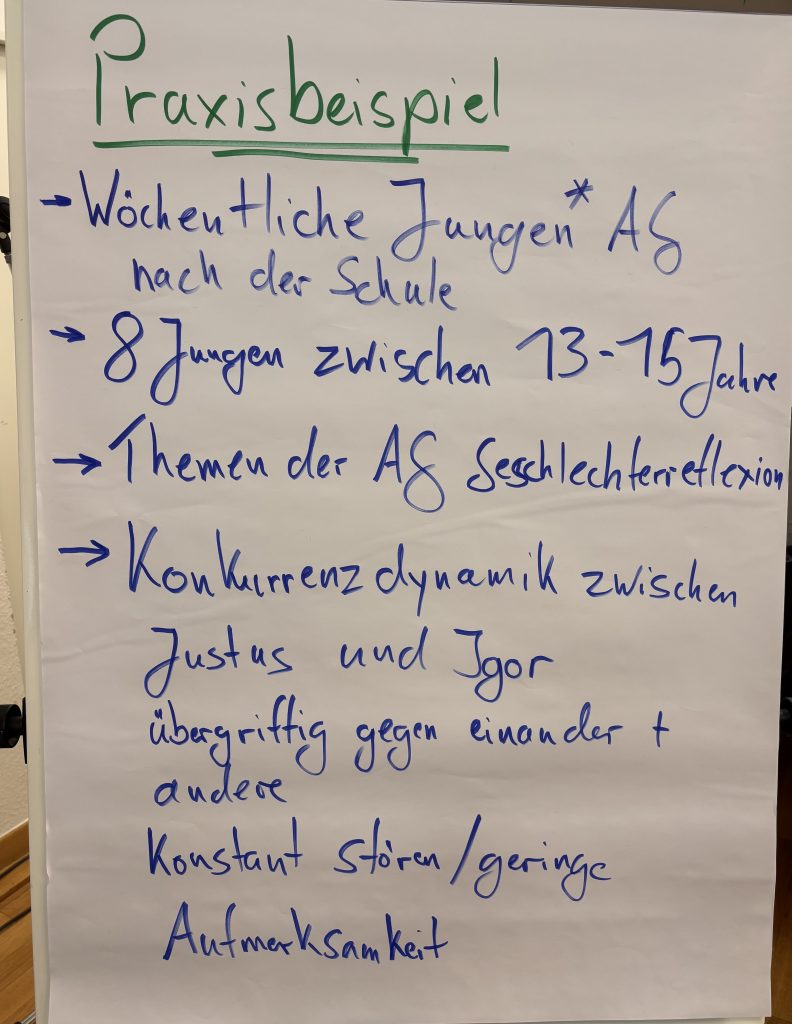 Praxisbeispiel
→ Wöchentliche Jungen* AG
nach der Schule
→ 8 Jungen zwischen 13-15 Jahre
→ Themen der AG Geschlechterreflexion
→ Konkurrenzdynamik zwischen
Justus und Igor
übergriffig gegen einander +
andere
Konstant stören/geringe
Aufmerksamkeit